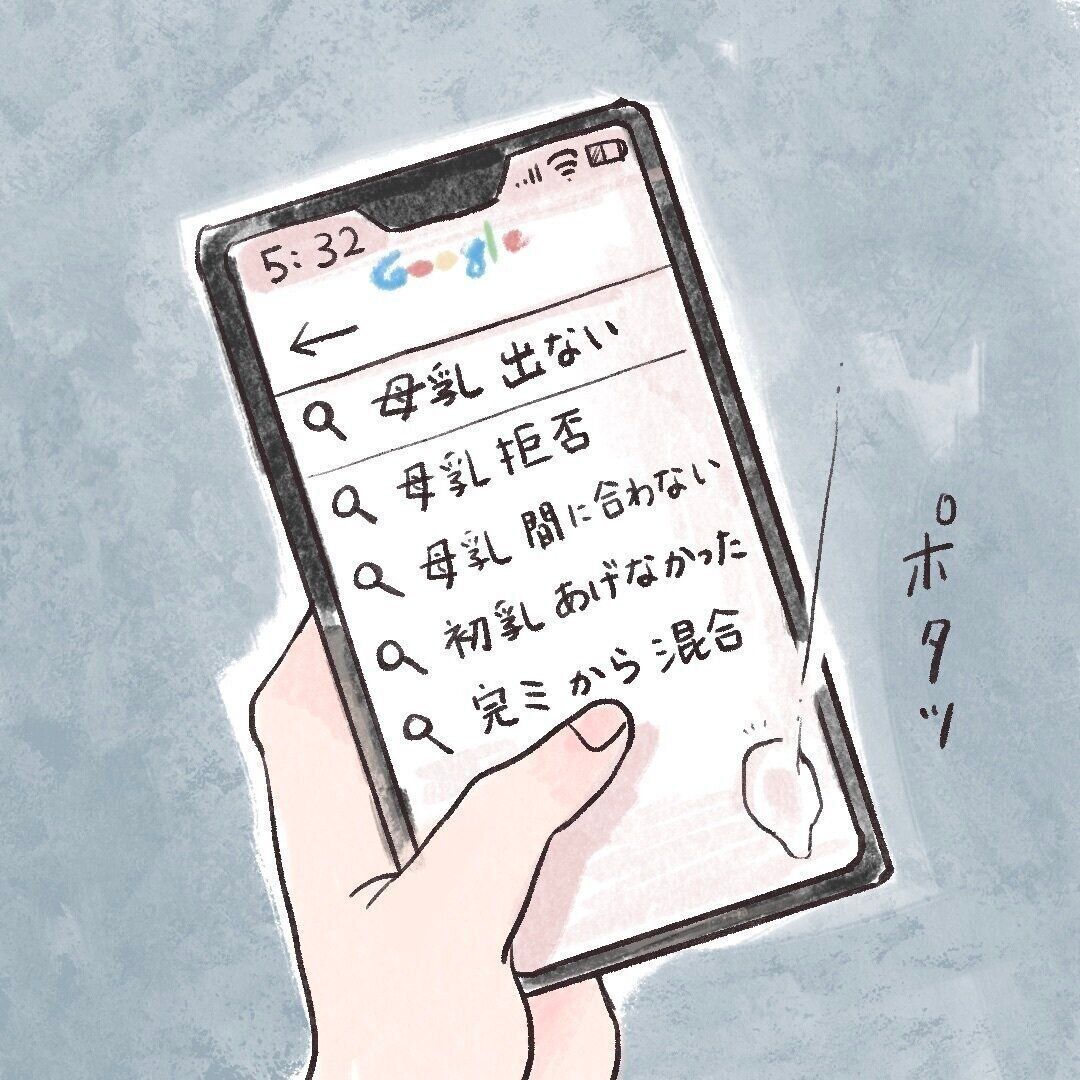 5:32
Google
←
母乳 出ない
母乳 拒否
母乳 間に合わない
初乳 あげなかった
完ミ から 混合
ポタッ